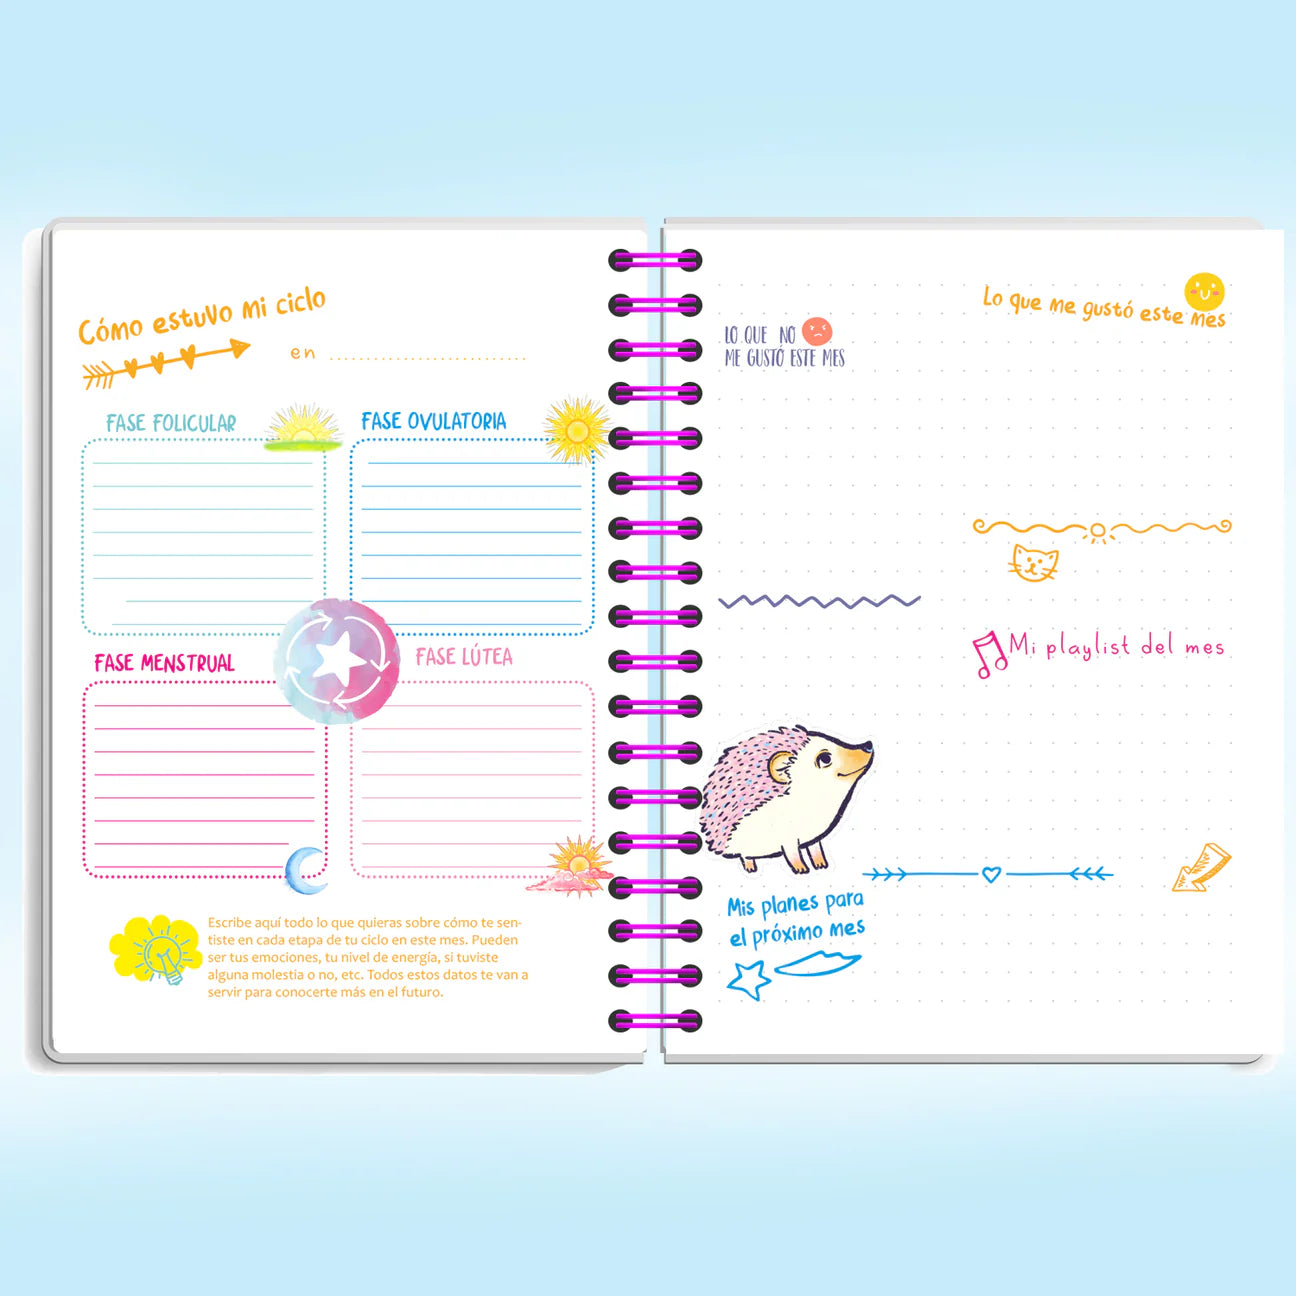 Cómo estuvo mi ciclo
en
FASE FOLICULAR
FASE OVULATORIA
FASE MENSTRUAL
FASE LÚTEA
Escribe aquí todo lo que quieras sobre cómo te sen-
tiste en cada etapa de tu ciclo en este mes. Pueden
ser tus emociones, tu nivel de energía, si tuviste
alguna molestia o no, etc. Todos estos datos te van a
servir para conocerte más en el futuro.
Lo que me gustó este mes
LO QUE NO
ME GUSTÓ ESTE MES
Mi playlist del mes
Mis planes para
el próximo mes